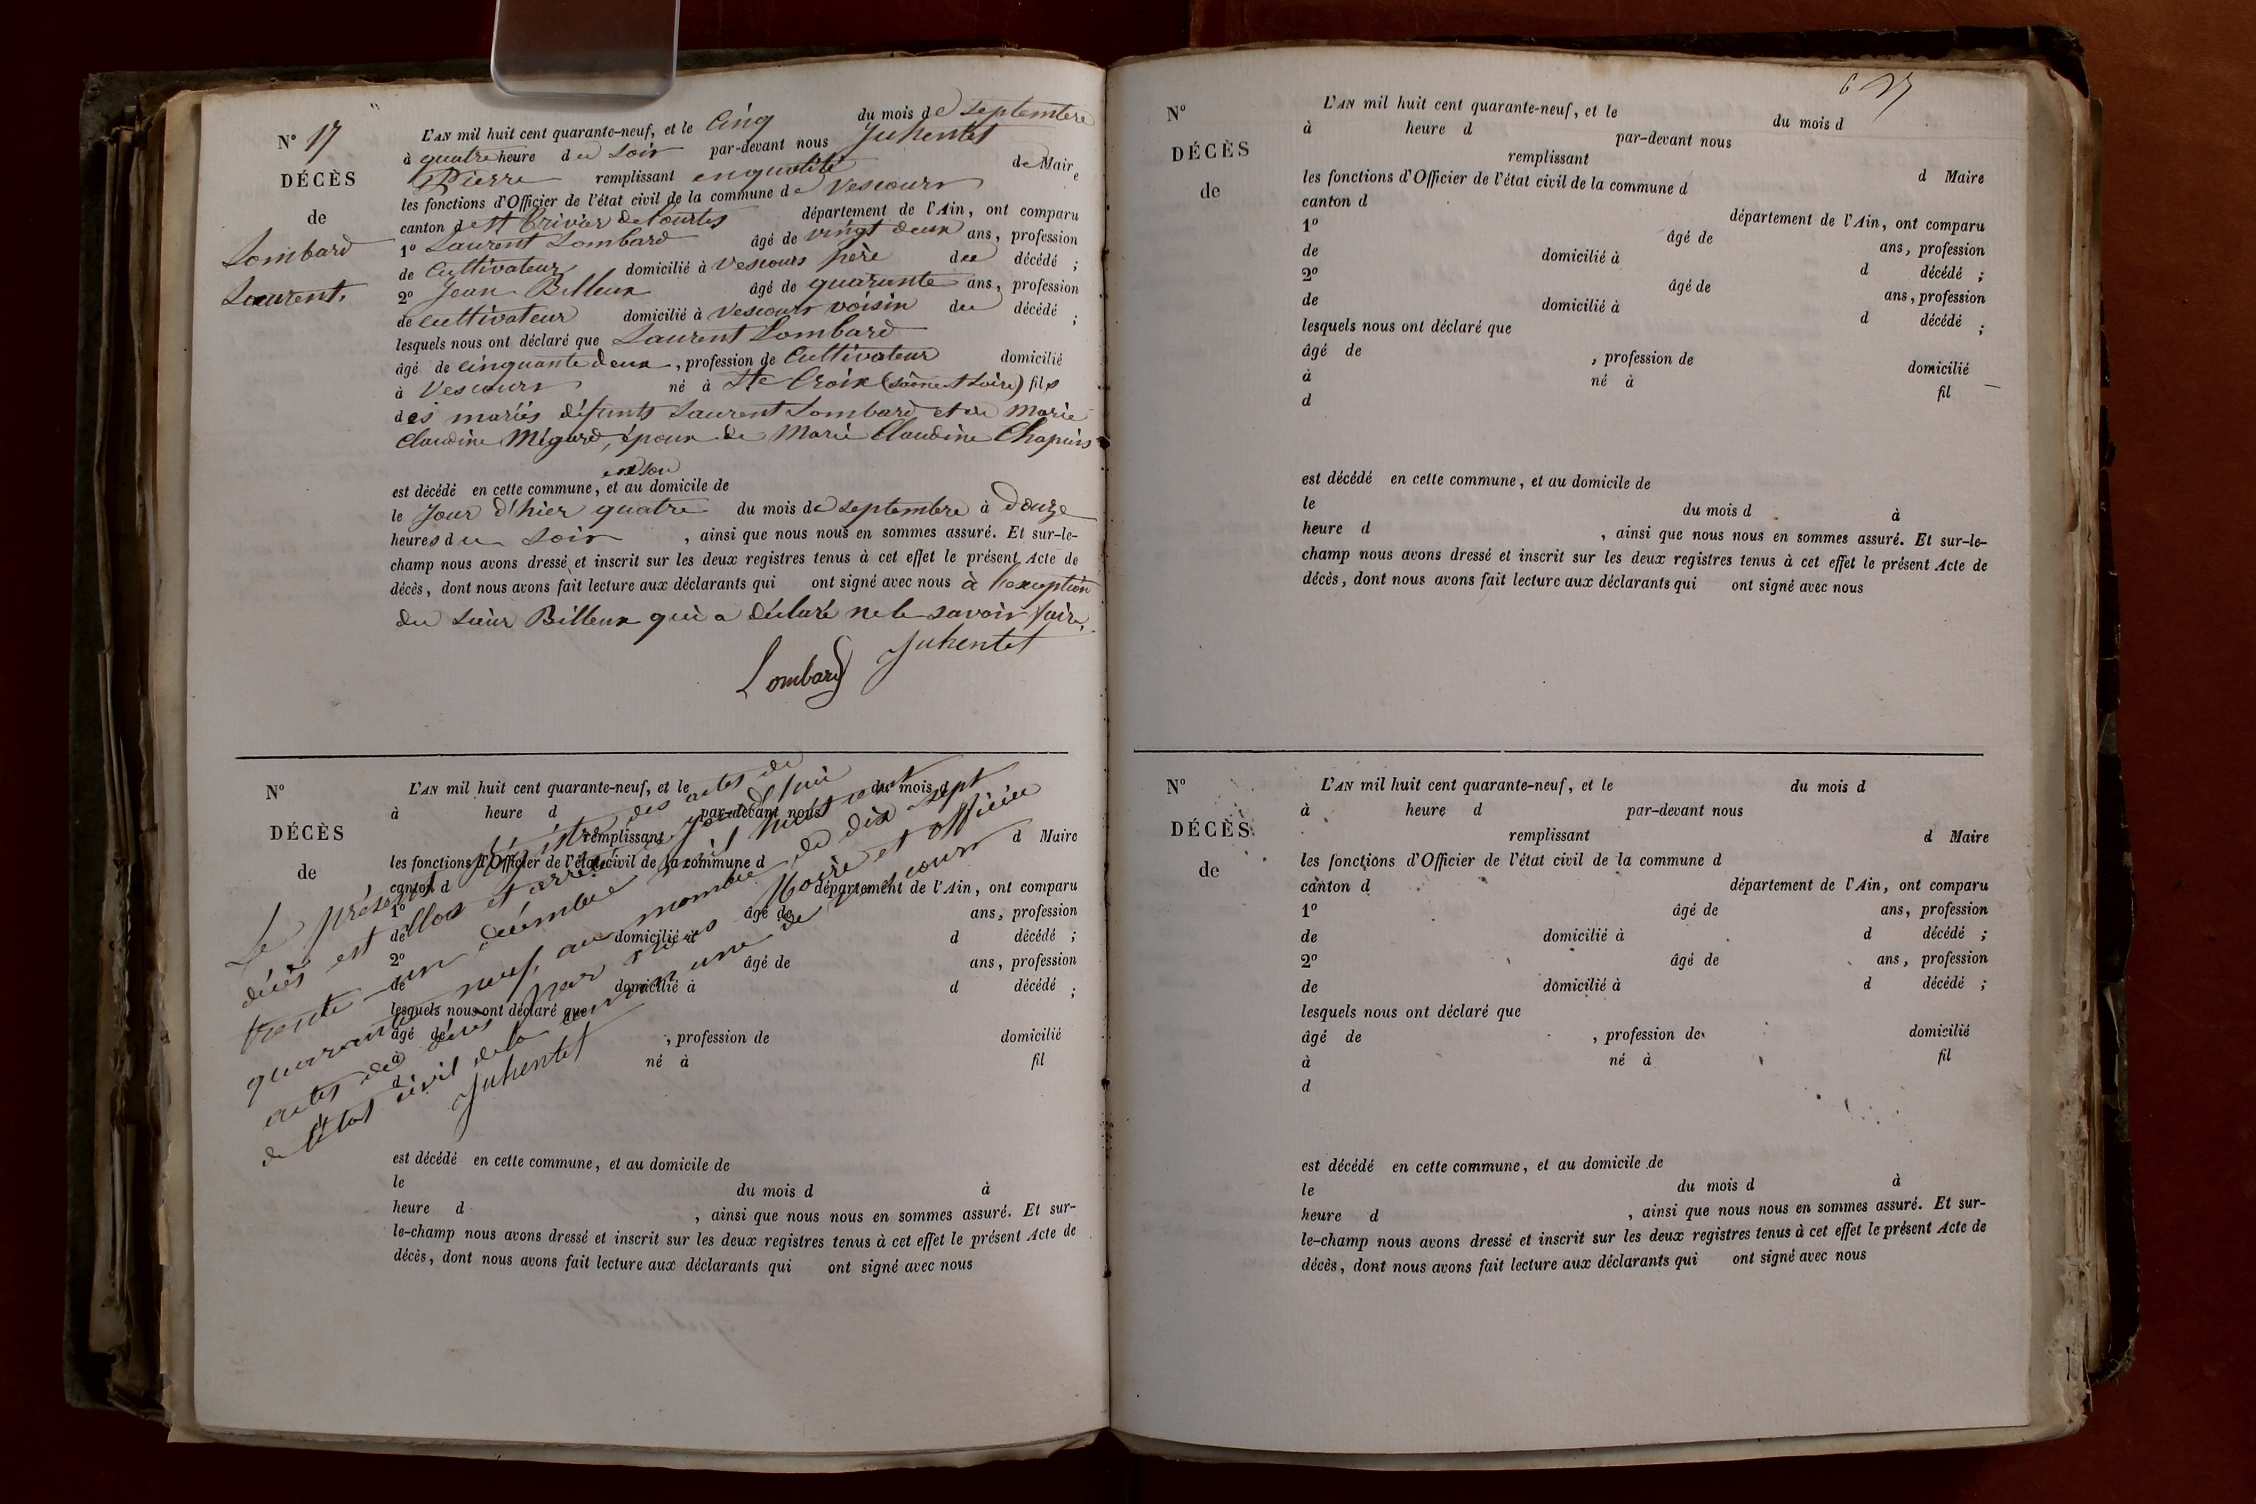 N° 17
DÉCÈS
de
Lombard
Laurent.
L'AN mil huit cent quarante-neuf, et le Cinq du mois de septembre
à quatre heure du soir par-devant nous Juhentet
Pierre remplissant en qualité de Maire
les fonctions d'Officier de l'état civil de la commune de Vescours
canton de St Trivier de Courtes département de l'Ain, ont comparu
1° Laurent Lombard âgé de vingt deux ans, profession
de Cultivateur domicilié à Vescours père du décédé ;
2° Jean Billeux âgé de quarante ans, profession
de Cultivateur domicilié à Vescours voisin du décédé ;
lesquels nous ont déclaré que Laurent Lombard
âgé de cinquante deux , profession de Cultivateur domicilié
à Vescours né à Ste Croix (Saône et Loire) fils
des mariés défunts Laurent Lombard et de Marie
Claudine Mégard, époux de Marie Claudine Chapuis
en son
est décédé en cette commune, et au domicile de
le Jour d'hier quatre du mois de septembre à Douze
heures du soir , ainsi que nous nous en sommes assuré. Et sur-le-
champ nous avons dressé et inscrit sur les deux registres tenus à cet effet le présent Acte de
décès, dont nous avons fait lecture aux déclarants qui ont signé avec nous à l'exception
du sieur Billeux qui a déclaré ne le savoir faire.
Juhentet
Lombard
N°
DÉCÈS
de
L'AN mil huit cent quarante-neuf, et le du mois d
à heure d par-devant nous
remplissant d Maire
les fonctions d'Officier de l'état civil de la commune d
canton d département de l'Ain, ont comparu
1° âgé de ans, profession
de domicilié à d décédé ;
2° âgé de ans, profession
de domicilié à d décédé ;
lesquels nous ont déclaré que
âgé de , profession de domicilié
à né à fil
d
Le présent registre des actes de
décès est clos et arrêté ce jourd'hui
trente-un décembre mil huit cent
quarante neuf, au nombre de dix sept
actes de décès par nous Maire et officier
de l'état civil de la commune de Vescours
Juhentet
est décédé en cette commune, et au domicile de
le du mois d à
heure d , ainsi que nous nous en sommes assuré. Et sur-
le-champ nous avons dressé et inscrit sur les deux registres tenus à cet effet le présent Acte de
décès, dont nous avons fait lecture aux déclarants qui ont signé avec nous
N°
DÉCÈS
de
L'AN mil huit cent quarante-neuf, et le du mois d
à heure d par-devant nous
remplissant d Maire
les fonctions d'Officier de l'état civil de la commune d
canton d département de l'Ain, ont comparu
1° âgé de ans, profession
de domicilié à d décédé ;
2° âgé de ans, profession
de domicilié à d décédé ;
lesquels nous ont déclaré que
âgé de , profession de domicilié
à né à fil
d
est décédé en cette commune, et au domicile de
le du mois d à
heure d , ainsi que nous nous en sommes assuré. Et sur-le-
champ nous avons dressé et inscrit sur les deux registres tenus à cet effet le présent Acte de
décès, dont nous avons fait lecture aux déclarants qui ont signé avec nous
N°
DÉCÈS
de
L'AN mil huit cent quarante-neuf, et le du mois d
à heure d par-devant nous
remplissant d Maire
les fonctions d'Officier de l'état civil de la commune d
canton d département de l'Ain, ont comparu
1° âgé de ans, profession
de domicilié à d décédé ;
2° âgé de ans, profession
de domicilié à d décédé ;
lesquels nous ont déclaré que
âgé de , profession de domicilié
à né à fil
d
est décédé en cette commune, et au domicile de
le du mois d à
heure d , ainsi que nous nous en sommes assuré. Et sur-
le-champ nous avons dressé et inscrit sur les deux registres tenus à cet effet le présent Acte de
décès, dont nous avons fait lecture aux déclarants qui ont signé avec nous